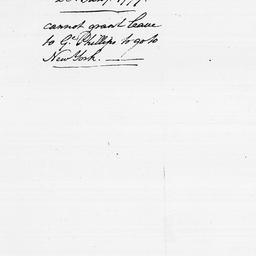 cannot grant leave
to Gl. Phillips to go to
New York. —